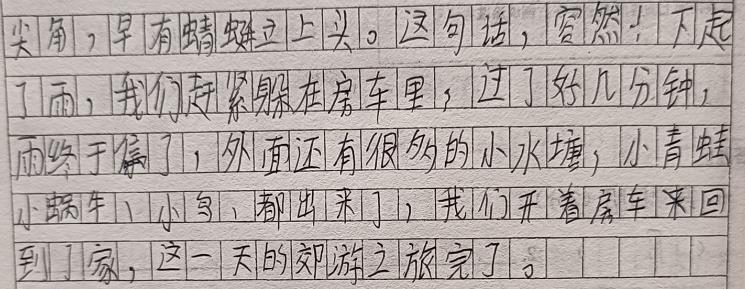 尖角，早有蜻蜓立上头。这句话，容然！下起
了雨，我们赶紧躲在房车里，过了好几分钟，
雨终于停了，外面还有很多的小水塘，小青蛙
小蜗牛、小鸟、都出来了，我们开着房车来回
到了家，这一天的郊游之旅完了。